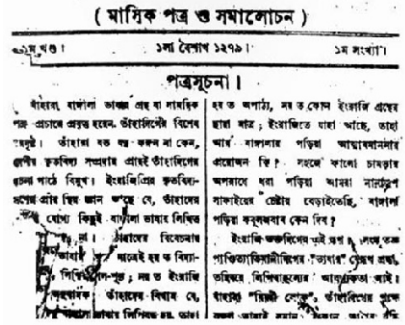 ( মাসিক পত্র ও সমালোচন )
১ম খণ্ড। ১লা বৈশাখ ১২৭৯। ১ম সংখ্যা।
পত্রসূচনা।
যাঁহারা বাঙ্গালা ভাষার গ্রন্থ বা সাময়িক
পত্র প্রচারে প্রবৃত্ত হয়েন, তাঁহাদিগের বিশেষ
তাঁহারা যত যত্ন করুন না কেন,
দেশীয় কৃতবিদ্য সম্প্রদায় প্রায়ই তাঁহাদিগের
রচনা পাঠে বিমুখ। ইংরাজিপ্রিয় কৃতবিদ্য-
গণের প্রায় স্থির জ্ঞান আছে যে, তাঁহাদের
যোগ্য কিছুই বাঙ্গালা ভাষায় লিখিত
না। তাঁহাদের বিবেচনায়
মাত্রেই হয়ত বিদ্যা-
নয়ত ইংরাজি
তাঁহাদের বিশ্বাস যে,
বাঙ্গালা ভাষায় লিপিবদ্ধ হয়, তাহা
হয়ত অপাঠ্য, নয়ত কোন ইংরাজি গ্রন্থের
ছায়া মাত্র; ইংরাজিতে যাহা আছে, তাহা
আর বাঙ্গালায় পড়িয়া আত্মাবমাননার
প্রয়োজন কি? সহজে কালো চামড়ার
অপরাধে ধরা পড়িয়া আমরা নানারূপ
সাফাইয়ের চেষ্টায় বেড়াইতেছি, বাঙ্গালা
পড়িয়া কবুলজবাব কেন দিব?
ইংরাজি ভক্তদিগের এই রূপ। সংস্কৃতজ্ঞ
পাণ্ডিত্যাভিমানীদিগের "ভাষায়" যেরূপ শ্রদ্ধা,
তদ্বিষয়ে লিপিবাহুল্যের আবশ্যকতা নাই।
যাঁহারা "বিষয়ী লোক", তাঁহাদিগের পক্ষে